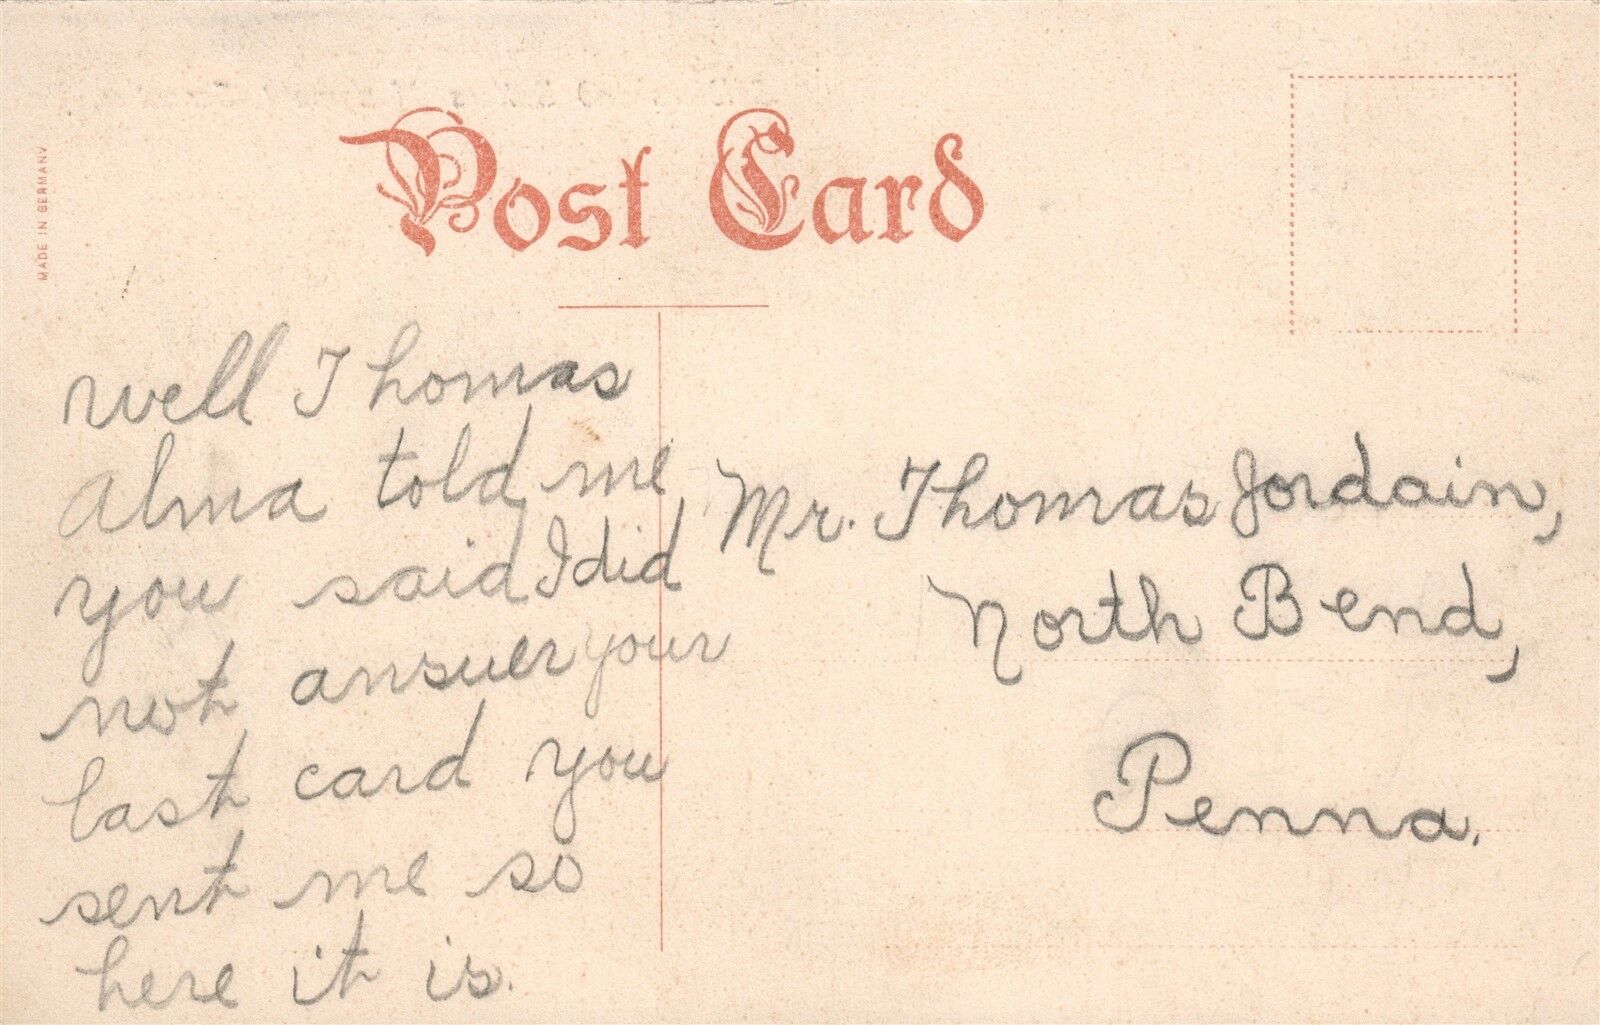 Post Card
MADE IN GERMANY
well Thomas
alma told me
you said I did
not ansuer your
last card you
sent me so
here it is.
Mr. Thomas Jordain,
North Bend,
Penna.